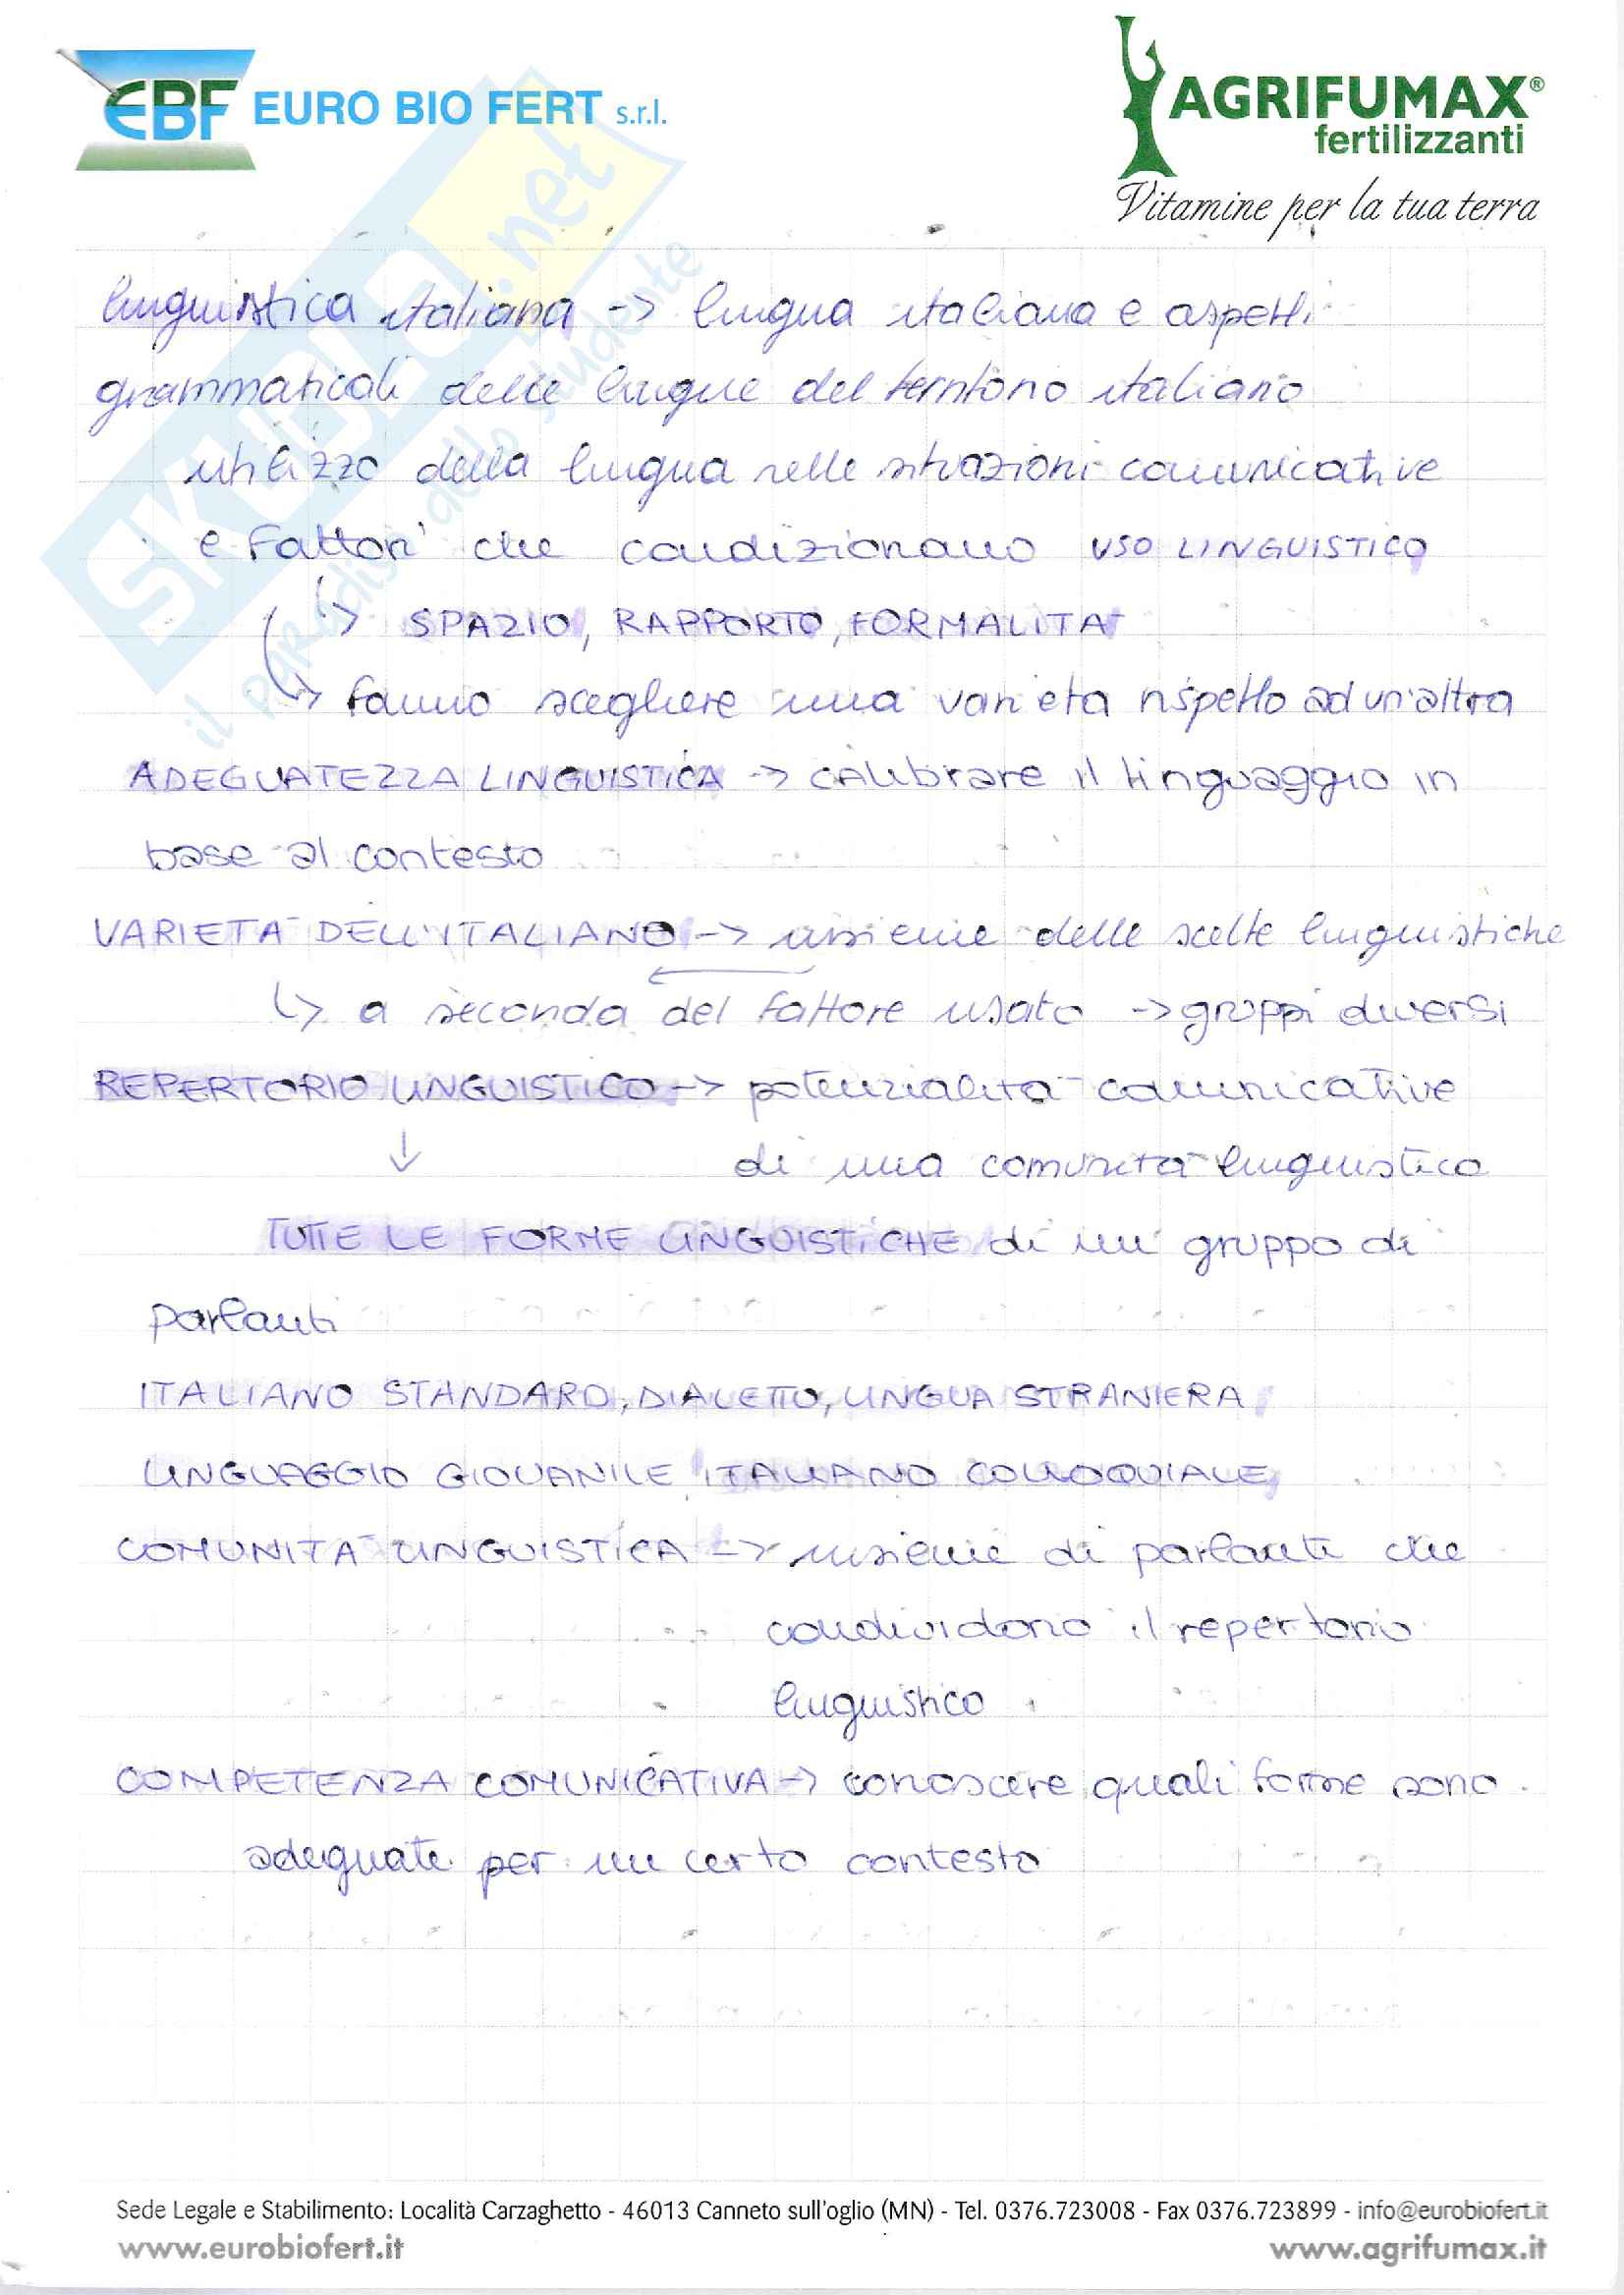 EBF EURO BIO FERT s.r.l.
AGRIFUMAX®
fertilizzanti
Vitamine per la tua terra
SKUOLA.net
il paradiso dello studente
linguistica italiana -> lingua italiana e aspetti
grammaticali delle lingue del territorio italiano
utilizzo della lingua nelle situazioni comunicative
e fattori che condizionano USO LINGUISTICO
↳ SPAZIO, RAPPORTO, FORMALITÀ
↳ fanno scegliere una varietà rispetto ad un'altra
ADEGUATEZZA LINGUISTICA -> calibrare il linguaggio in
base al contesto
VARIETÀ DELL'ITALIANO -> insieme delle scelte linguistiche
↳ a seconda del fattore usato -> gruppi diversi
REPERTORIO LINGUISTICO -> potenzialità comunicative
↓ di una comunità linguistica
TUTTE LE FORME LINGUISTICHE di un gruppo di
parlanti
ITALIANO STANDARD, DIALETTO, LINGUA STRANIERA
LINGUAGGIO GIOVANILE, ITALIANO COLLOQUIALE,
COMUNITÀ LINGUISTICA -> insieme di parlanti che
condividono il repertorio
linguistico
COMPETENZA COMUNICATIVA -> conoscere quali forme sono
adeguate per un certo contesto
Sede Legale e Stabilimento: Località Carzaghetto - 46013 Canneto sull'oglio (MN) - Tel. 0376.723008 - Fax 0376.723899 - info@eurobiofert.it
www.eurobiofert.it www.agrifumax.it